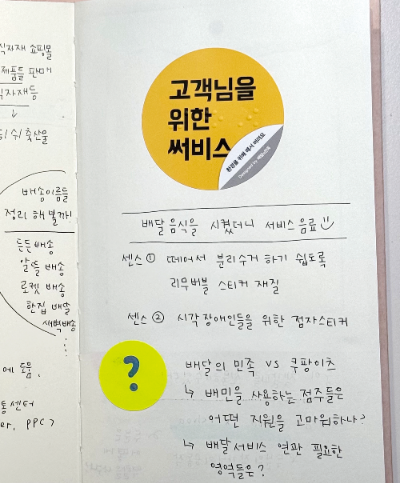 식자재 쇼핑몰
제품들 판매
식자재등
↓
농/수/축산물
배송이름들
정리 해볼까!
든든배송
알뜰 배송
로켓 배송
한집 배달
새벽배송
에 도움.
통센터
PPC?
고객님을
위한
써비스
환경을 위해 떼서 버려요
Designed by 배달의민족
배달음식을 시켰더니 서비스 음료
센스 ① 떼어서 분리수거 하기 쉽도록
리무버블 스티커 재질
센스 ② 시각장애인들을 위한 점자스티커
?
배달의 민족 VS 쿠팡이츠
↳ 배민을 사용하는 점주들은
어떤 지원을 고마워하나?
↳ 배달서비스 연판 필요한
영역들은?